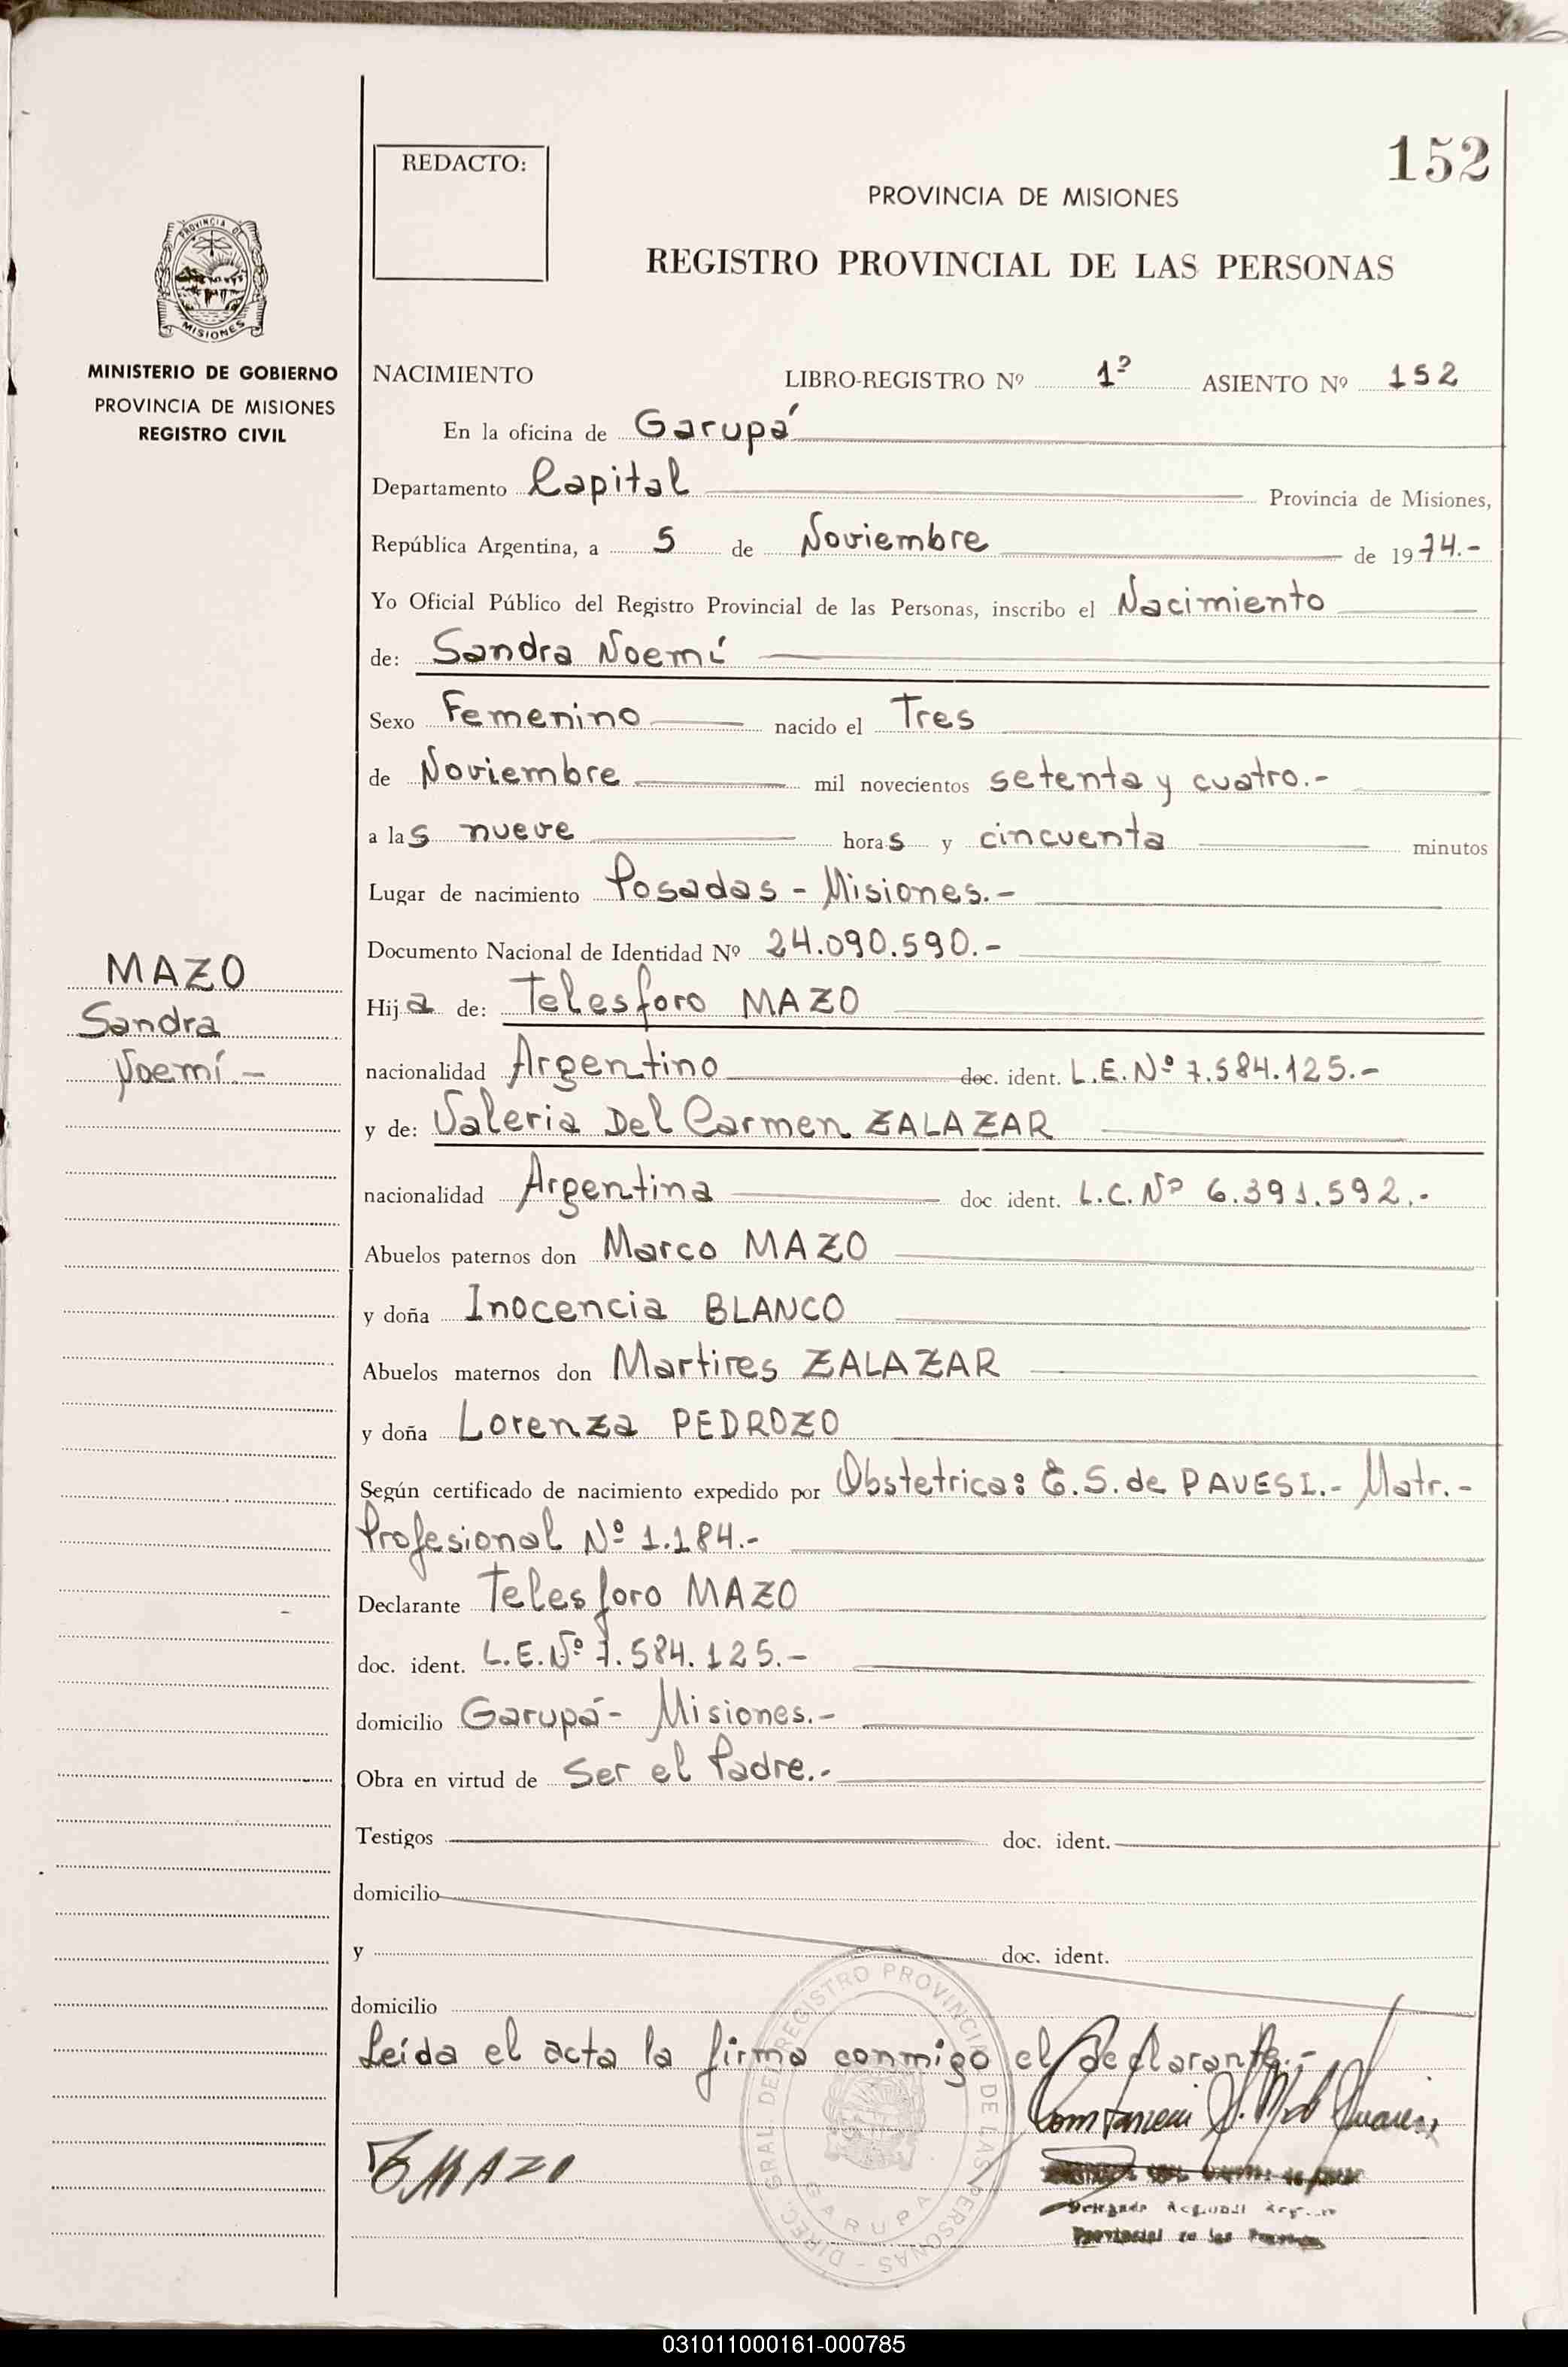 152
REDACTO:
PROVINCIA DE MISIONES
REGISTRO PROVINCIAL DE LAS PERSONAS
PROVINCIA DE
MISIONES
MINISTERIO DE GOBIERNO
PROVINCIA DE MISIONES
REGISTRO CIVIL
NACIMIENTO LIBRO-REGISTRO Nº 1º ASIENTO Nº 152
En la oficina de Garupá
Departamento Capital Provincia de Misiones,
República Argentina, a 5 de Noviembre de 1974.-
Yo Oficial Público del Registro Provincial de las Personas, inscribo el Nacimiento
de: Sandra Noemí
Sexo Femenino nacido el Tres
de Noviembre mil novecientos setenta y cuatro.-
a las nueve horas y cincuenta minutos
Lugar de nacimiento Posadas - Misiones.-
Documento Nacional de Identidad Nº 24.090.590.-
MAZO
Sandra
Noemí.-
Hija de: Telesforo MAZO
nacionalidad Argentino doc. ident. L.E. Nº 7.584.125.-
y de: Valeria Del Carmen ZALAZAR
nacionalidad Argentina doc ident. L.C. Nº 6.391.592.-
Abuelos paternos don Marco MAZO
y doña Inocencia BLANCO
Abuelos maternos don Martires ZALAZAR
y doña Lorenza PEDROZO
Según certificado de nacimiento expedido por Obstetrica: E.S. de PAVESI.- Matr.-
Profesional Nº 1.184.-
Declarante Telesforo MAZO
doc. ident. L.E. Nº 7.584.125.-
domicilio Garupá- Misiones.-
Obra en virtud de Ser el Padre.-
Testigos doc. ident.
domicilio
y doc. ident.
domicilio
Leída el acta la firma conmigo el declarante.-
T MAZO
DIREC. GRAL. DEL REGISTRO PROVINCIAL DE LAS PERSONAS -
GARUPA
Delegada
Provincial de las Personas
031011000161-000785